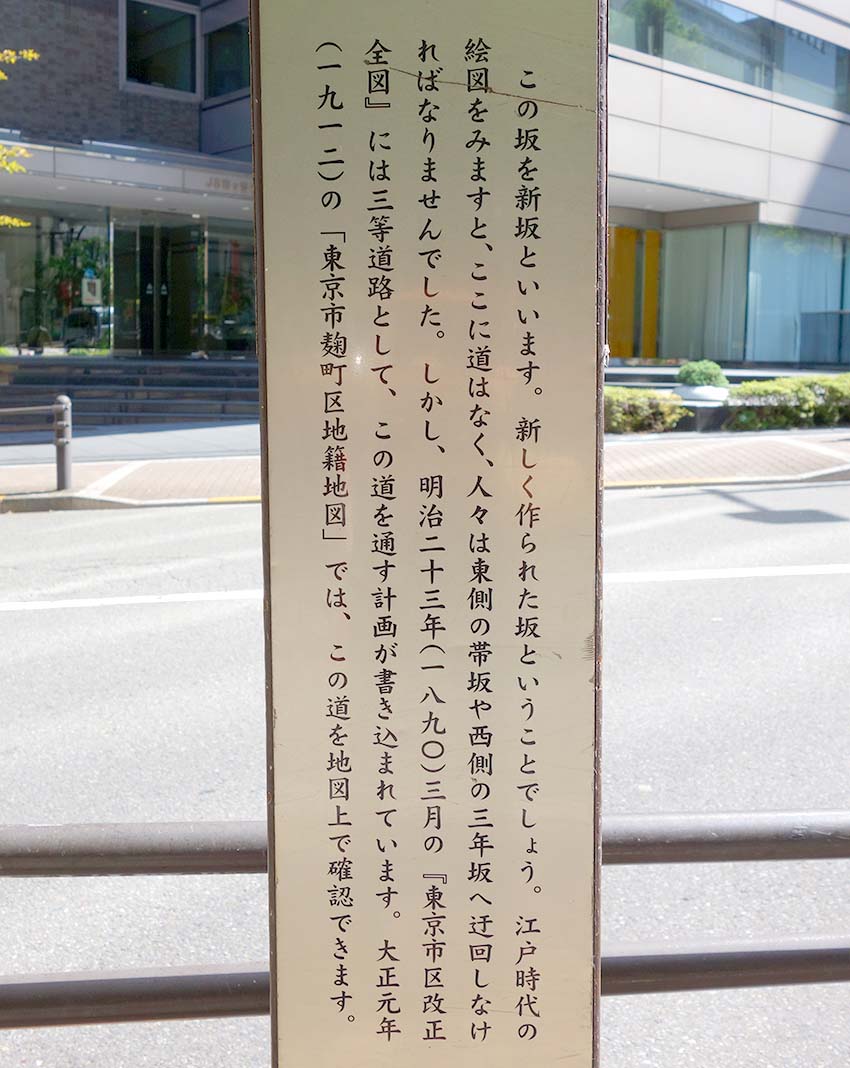 この坂を新坂といいます。新しく作られた坂ということでしょう。江戸時代の
絵図をみますと、ここに道はなく、人々は東側の帯坂や西側の三年坂へ迂回しなけ
ればなりませんでした。しかし、明治二十三年(一八九〇)三月の『東京市区改正
全図』には三等道路として、この道を通す計画が書き込まれています。大正元年
(一九一二)の「東京市麹町区地籍地図」では、この道を地図上で確認できます。